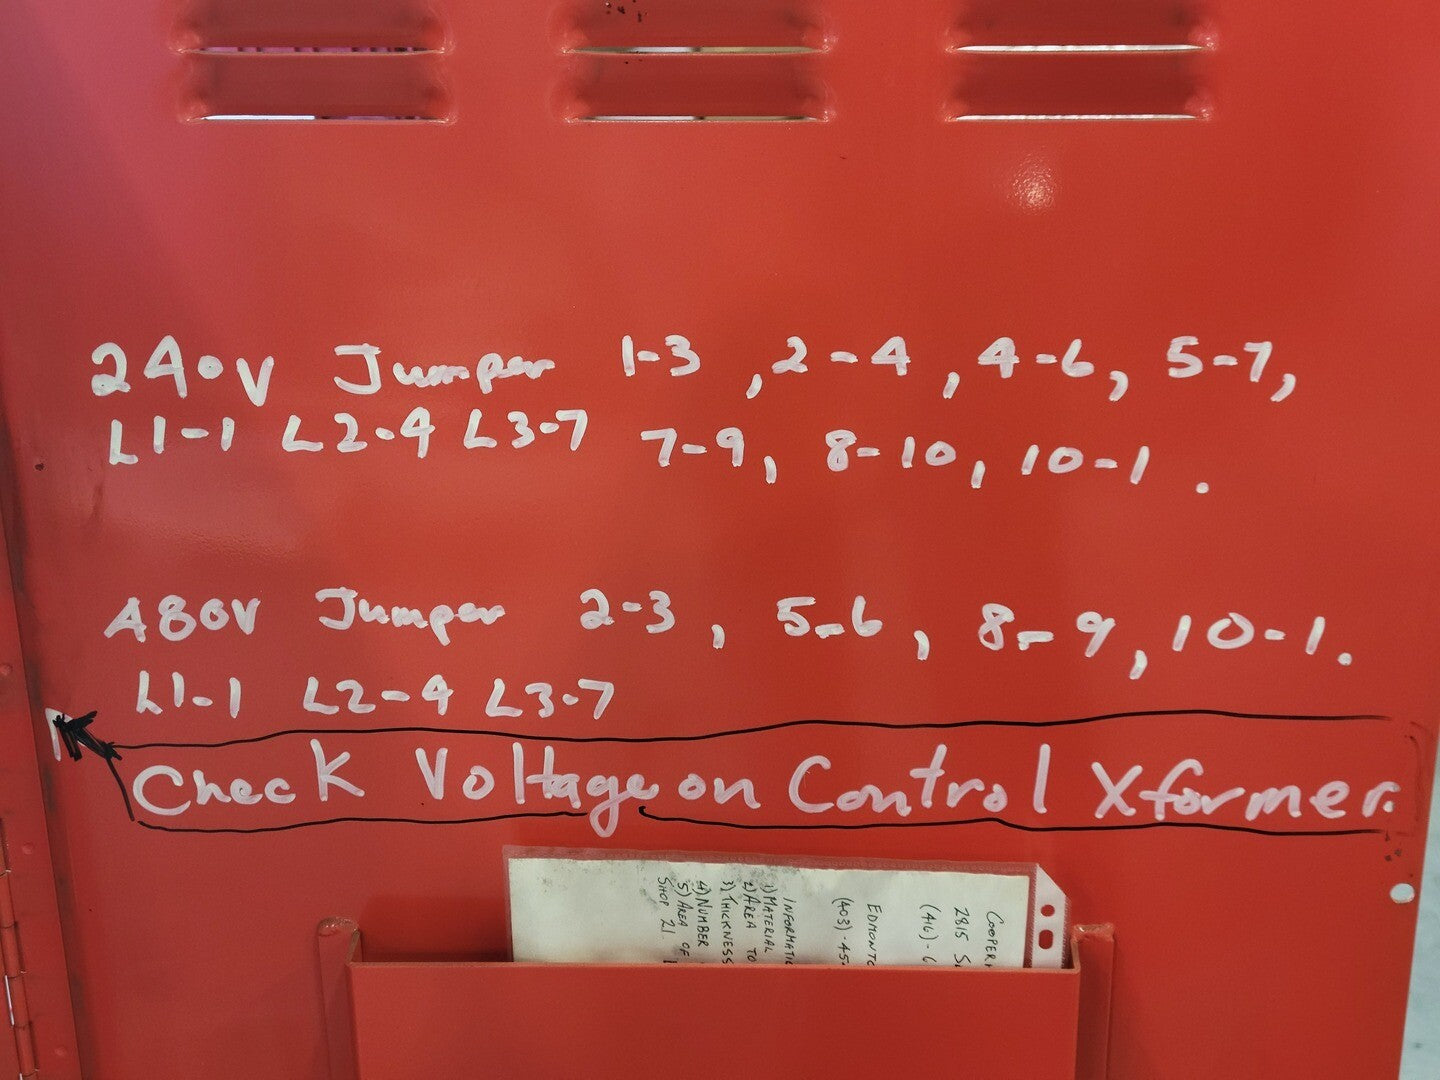 240V Jumper 1-3, 2-4, 4-6, 5-7,
L1-1 L2-4 L3-7 7-9, 8-10, 10-1.
480V Jumper 2-3, 5-6, 8-9, 10-1.
L1-1 L2-4 L3-7
Check Voltage on Control Xformer.
COOPER
2815
(416)-6
EDMONTO
(403)-45
INFORMATIO
1) MATERIAL
2) AREA TO
3) THICKNESS
4) NUMBER
5) AREA OF
SHOP 21